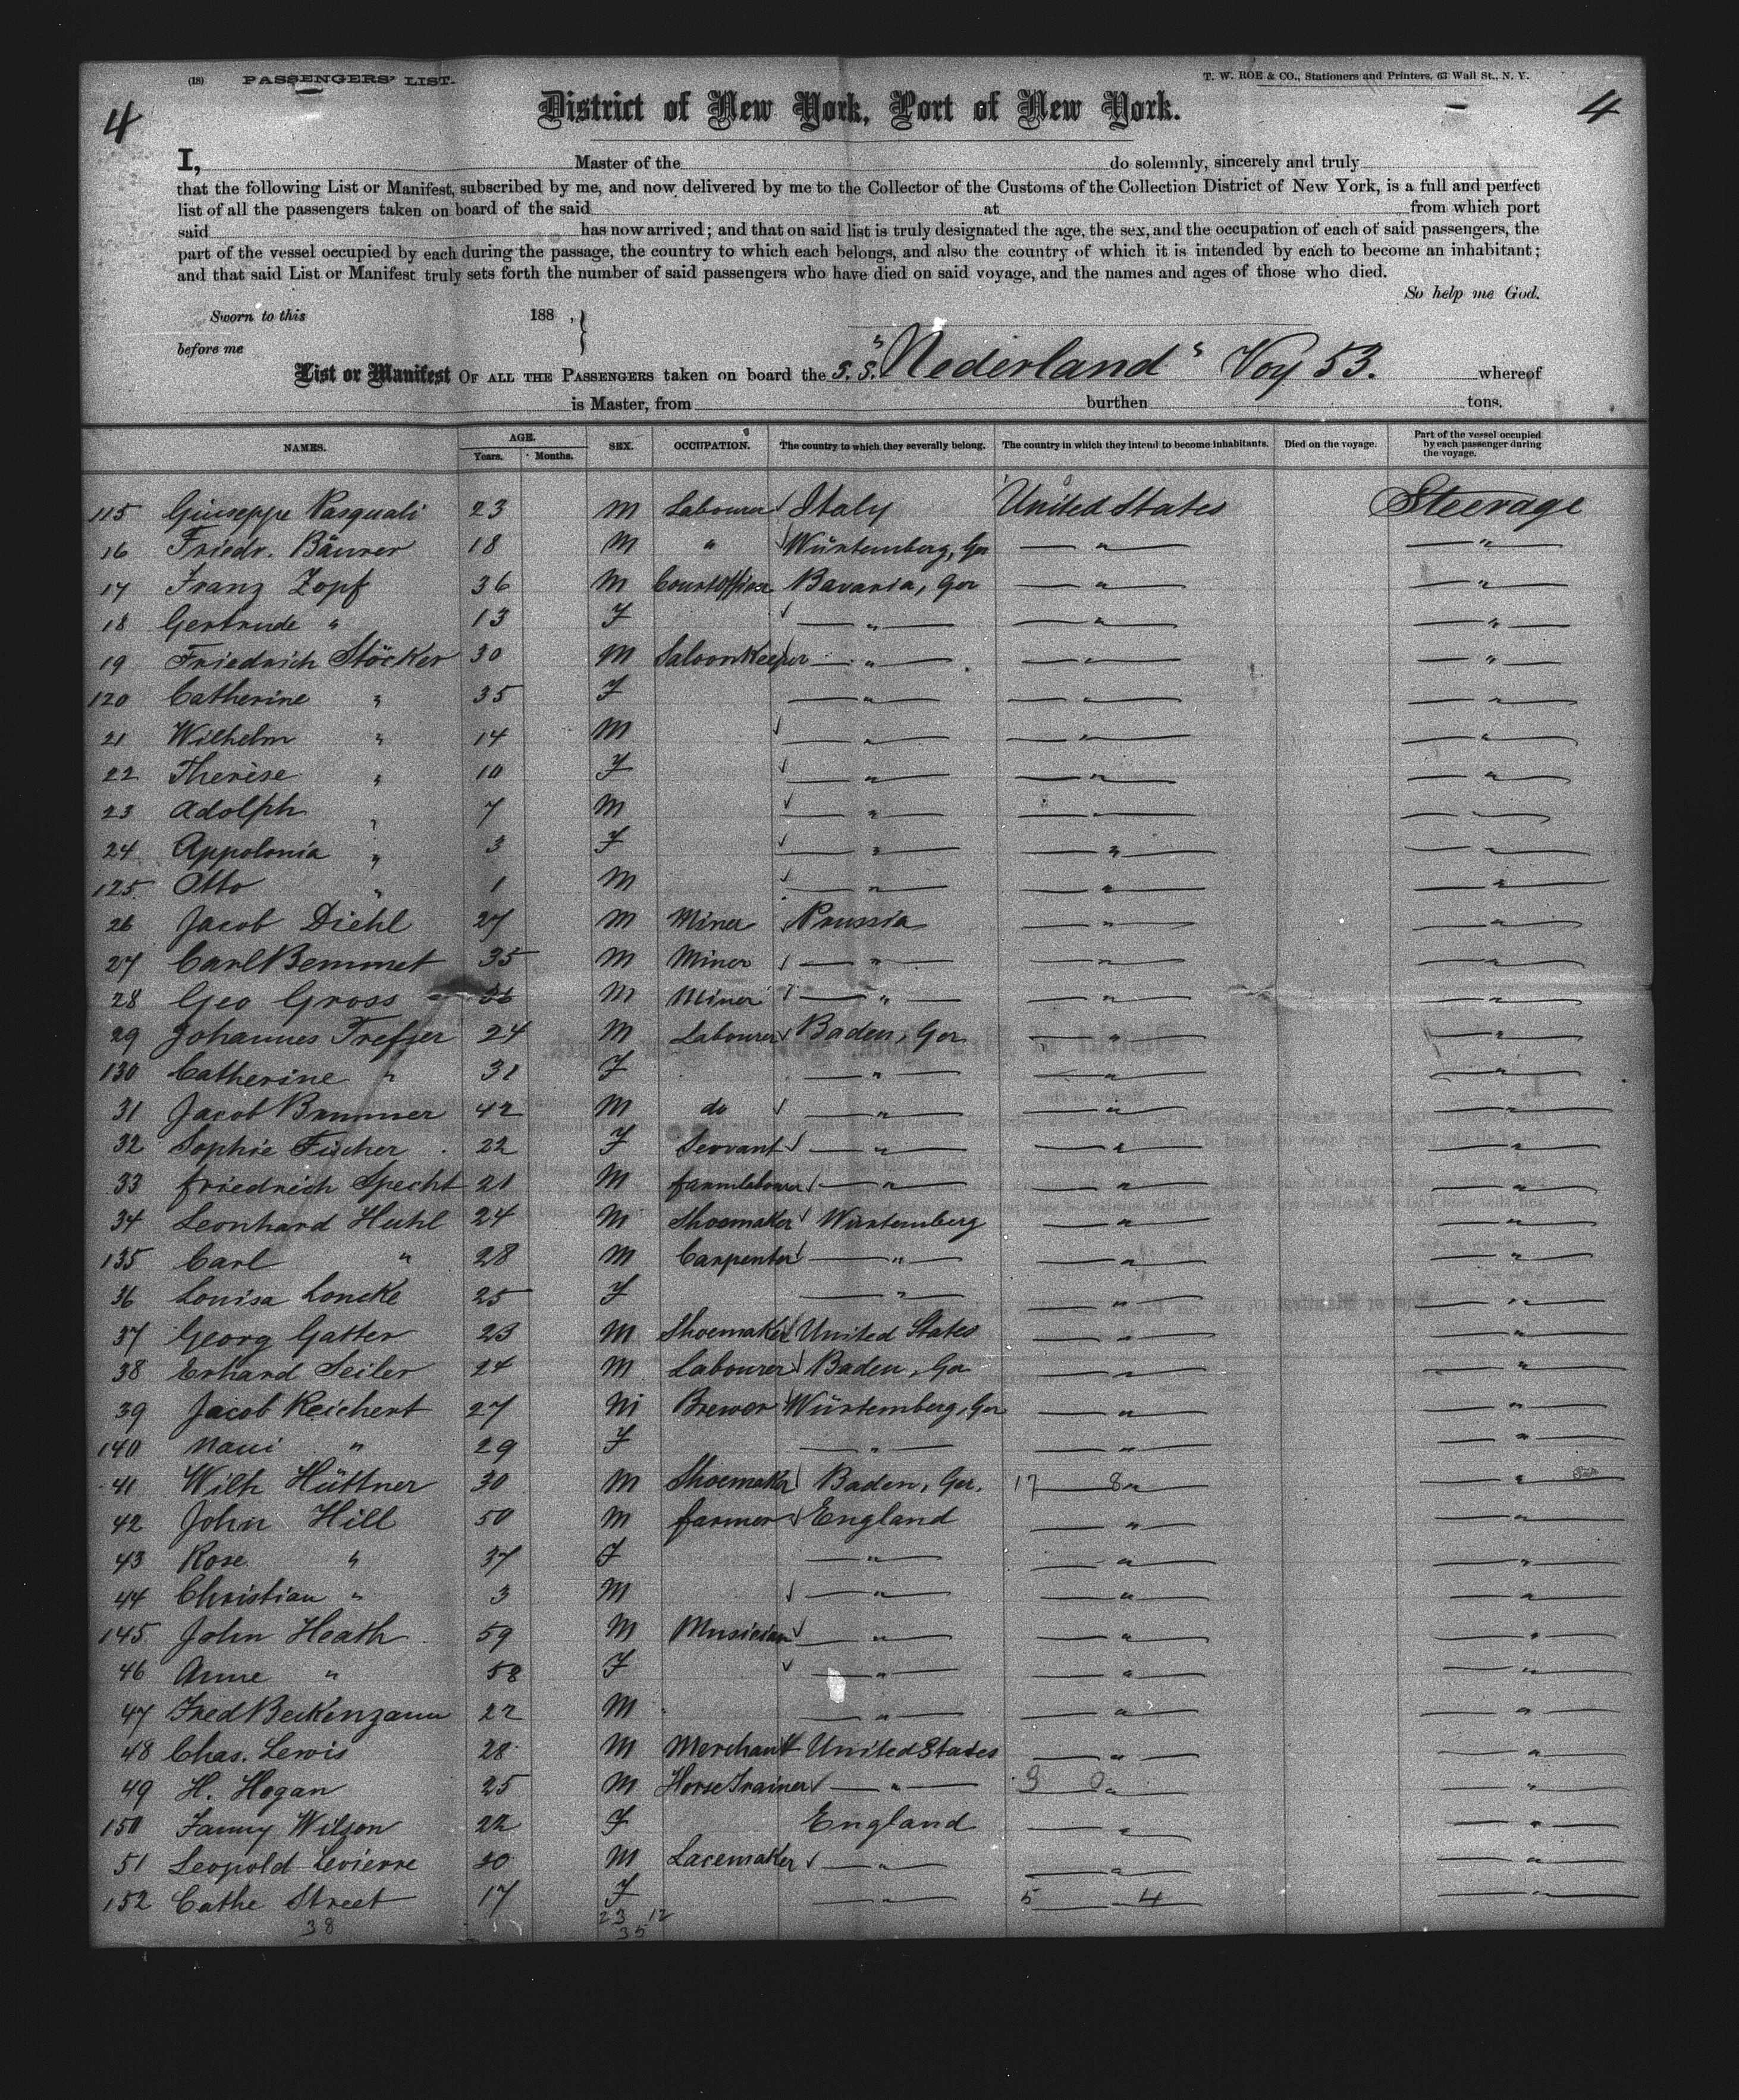 (18) PASSENGERS' LIST. T. W. ROE & CO., Stationers and Printers, 63 Wall St., N. Y.
4 District of New York, Port of New York. 4
I, Master of the do solemnly, sincerely and truly
that the following List or Manifest, subscribed by me, and now delivered by me to the Collector of the Customs of the Collection District of New York, is a full and perfect
list of all the passengers taken on board of the said at from which port
said has now arrived; and that on said list is truly designated the age, the sex, and the occupation of each of said passengers, the
part of the vessel occupied by each during the passage, the country to which each belongs, and also the country of which it is intended by each to become an inhabitant;
and that said List or Manifest truly sets forth the number of said passengers who have died on said voyage, and the names and ages of those who died.
So help me God.
Sworn to this 188 ,
before me
List or Manifest OF ALL THE PASSENGERS taken on board the S.S. "Nederland" Voy 53. whereof
is Master, from burthen tons.
NAMES. AGE. Years. Months. SEX. OCCUPATION. The country to which they severally belong. The country in which they intend to become inhabitants. Died on the voyage. Part of the vessel occupied by each passenger during the voyage.
115 Giuseppe Pasquali 23 M Labourer Italy United States Steerage
16 Friedr. Bäurer 18 M " Würtemberg, Ger " "
17 Franz Zopf 36 M Court Officer Bavaria, Ger " "
18 Gertrude " 13 F " " "
19 Friedrich Stöcker 30 M Saloonkeeper " " "
120 Catherine " 35 F " " "
21 Wilhelm " 14 M " " "
22 Therèse " 10 F " " "
23 Adolph " 7 M " " "
24 Appolonia " 3 F " " "
125 Otto " 1 M " " "
26 Jacob Diehl 27 M Miner Prussia " "
27 Carl Bemmet 35 M Miner " " "
28 Geo Gross 36 M Miner " " "
29 Johannes 24 M Labourer Baden, Ger " "
130 Catherine " 31 F " " "
31 Jacob Brunner 42 M do " " "
32 Sophie Fischer 22 F Servant " " "
33 Friedreich Specht 21 M farmlabourer " " "
34 Leonhard Huhl 24 M Shoemaker Würtemberg " "
135 Carl " 28 M Carpenter " " "
36 Louisa Loncke 25 F " " "
37 Georg Gatter 23 M Shoemaker United States " "
38 Erhard Seiler 24 M Labourer Baden, Ger " "
39 Jacob Reichert 27 M Brewer Würtemberg, Ger " "
140 " 29 F " " "
41 Wilh Hüttner 30 M Shoemaker Baden, Ger, 17 8 " "
42 John Hill 50 M farmer England " "
43 Rose " 37 F " " "
44 Christian " 3 M " " "
145 John Heath 59 M Musician " " "
46 Anne " 58 F " " "
47 Fred 22 M " " "
48 Chas. Lewis 28 M Merchant United States " "
49 H. Hogan 25 M Horse Trainer " 9 0 " "
150 Fanny Wilson 22 F England " "
51 Leopold M Lacemaker " " "
152 Cathe Street 17 F " 5 4 "
38 23 12
35